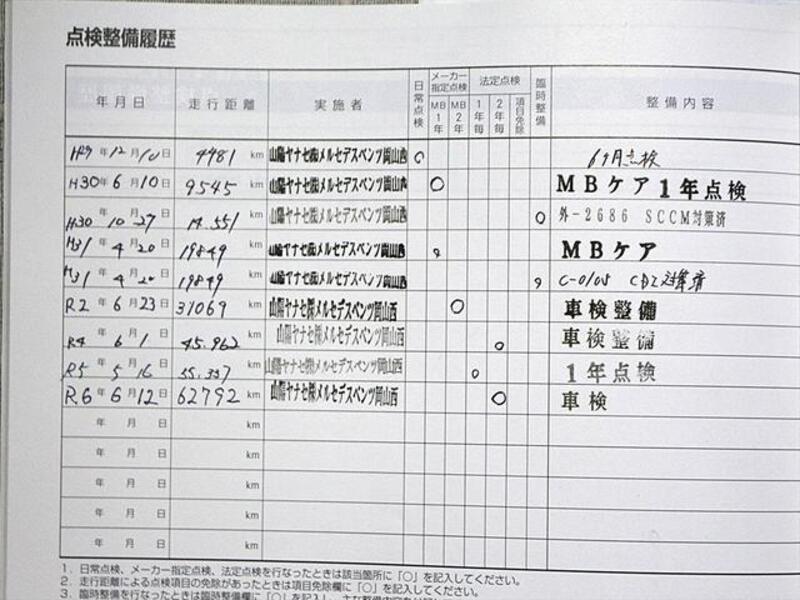 点検整備履歴
年月日 走行距離 実施者 日常点検 メーカー指定点検 MB1年 MB2年 法定点検 1年毎 2年毎 項目免除 臨時整備 整備内容
H29年12月10日 4981 km 山陽ヤナセ㈱メルセデスベンツ岡山西 ○ 6ヶ月点検
H30年6月10日 9545 km 山陽ヤナセ㈱メルセデスベンツ岡山西 ○ MBケア1年点検
H30年10月27日 14.551 km 山陽ヤナセ㈱メルセデスベンツ岡山西 ○ 外-2686 SCCM対策済
H31年4月20日 19849 km 山陽ヤナセ㈱メルセデスベンツ岡山西 ○ MBケア
H31年4月20日 19849 km 山陽ヤナセ㈱メルセデスベンツ岡山西 ○ C-0108
R2年6月23日 31069 km 山陽ヤナセ㈱メルセデスベンツ岡山西 ○ 車検整備
R4年6月1日 45.962 km 山陽ヤナセ㈱メルセデスベンツ岡山西 ○ 車検整備
R5年5月16日 55.337 km 山陽ヤナセ㈱メルセデスベンツ岡山西 ○ 1年点検
R6年6月12日 62792 km 山陽ヤナセ㈱メルセデスベンツ岡山西 ○ 車検
年 月 日 km
年 月 日 km
年 月 日 km
年 月 日 km
年 月 日 km
1. 日常点検、メーカー指定点検、法定点検を行なったときは該当箇所に「○」を記入してください。
2. 走行距離による点検項目の免除があったときは項目免除欄に「○」を記入してください。
3. 臨時整備を行なったときは臨時整備欄に「○」を記入し、